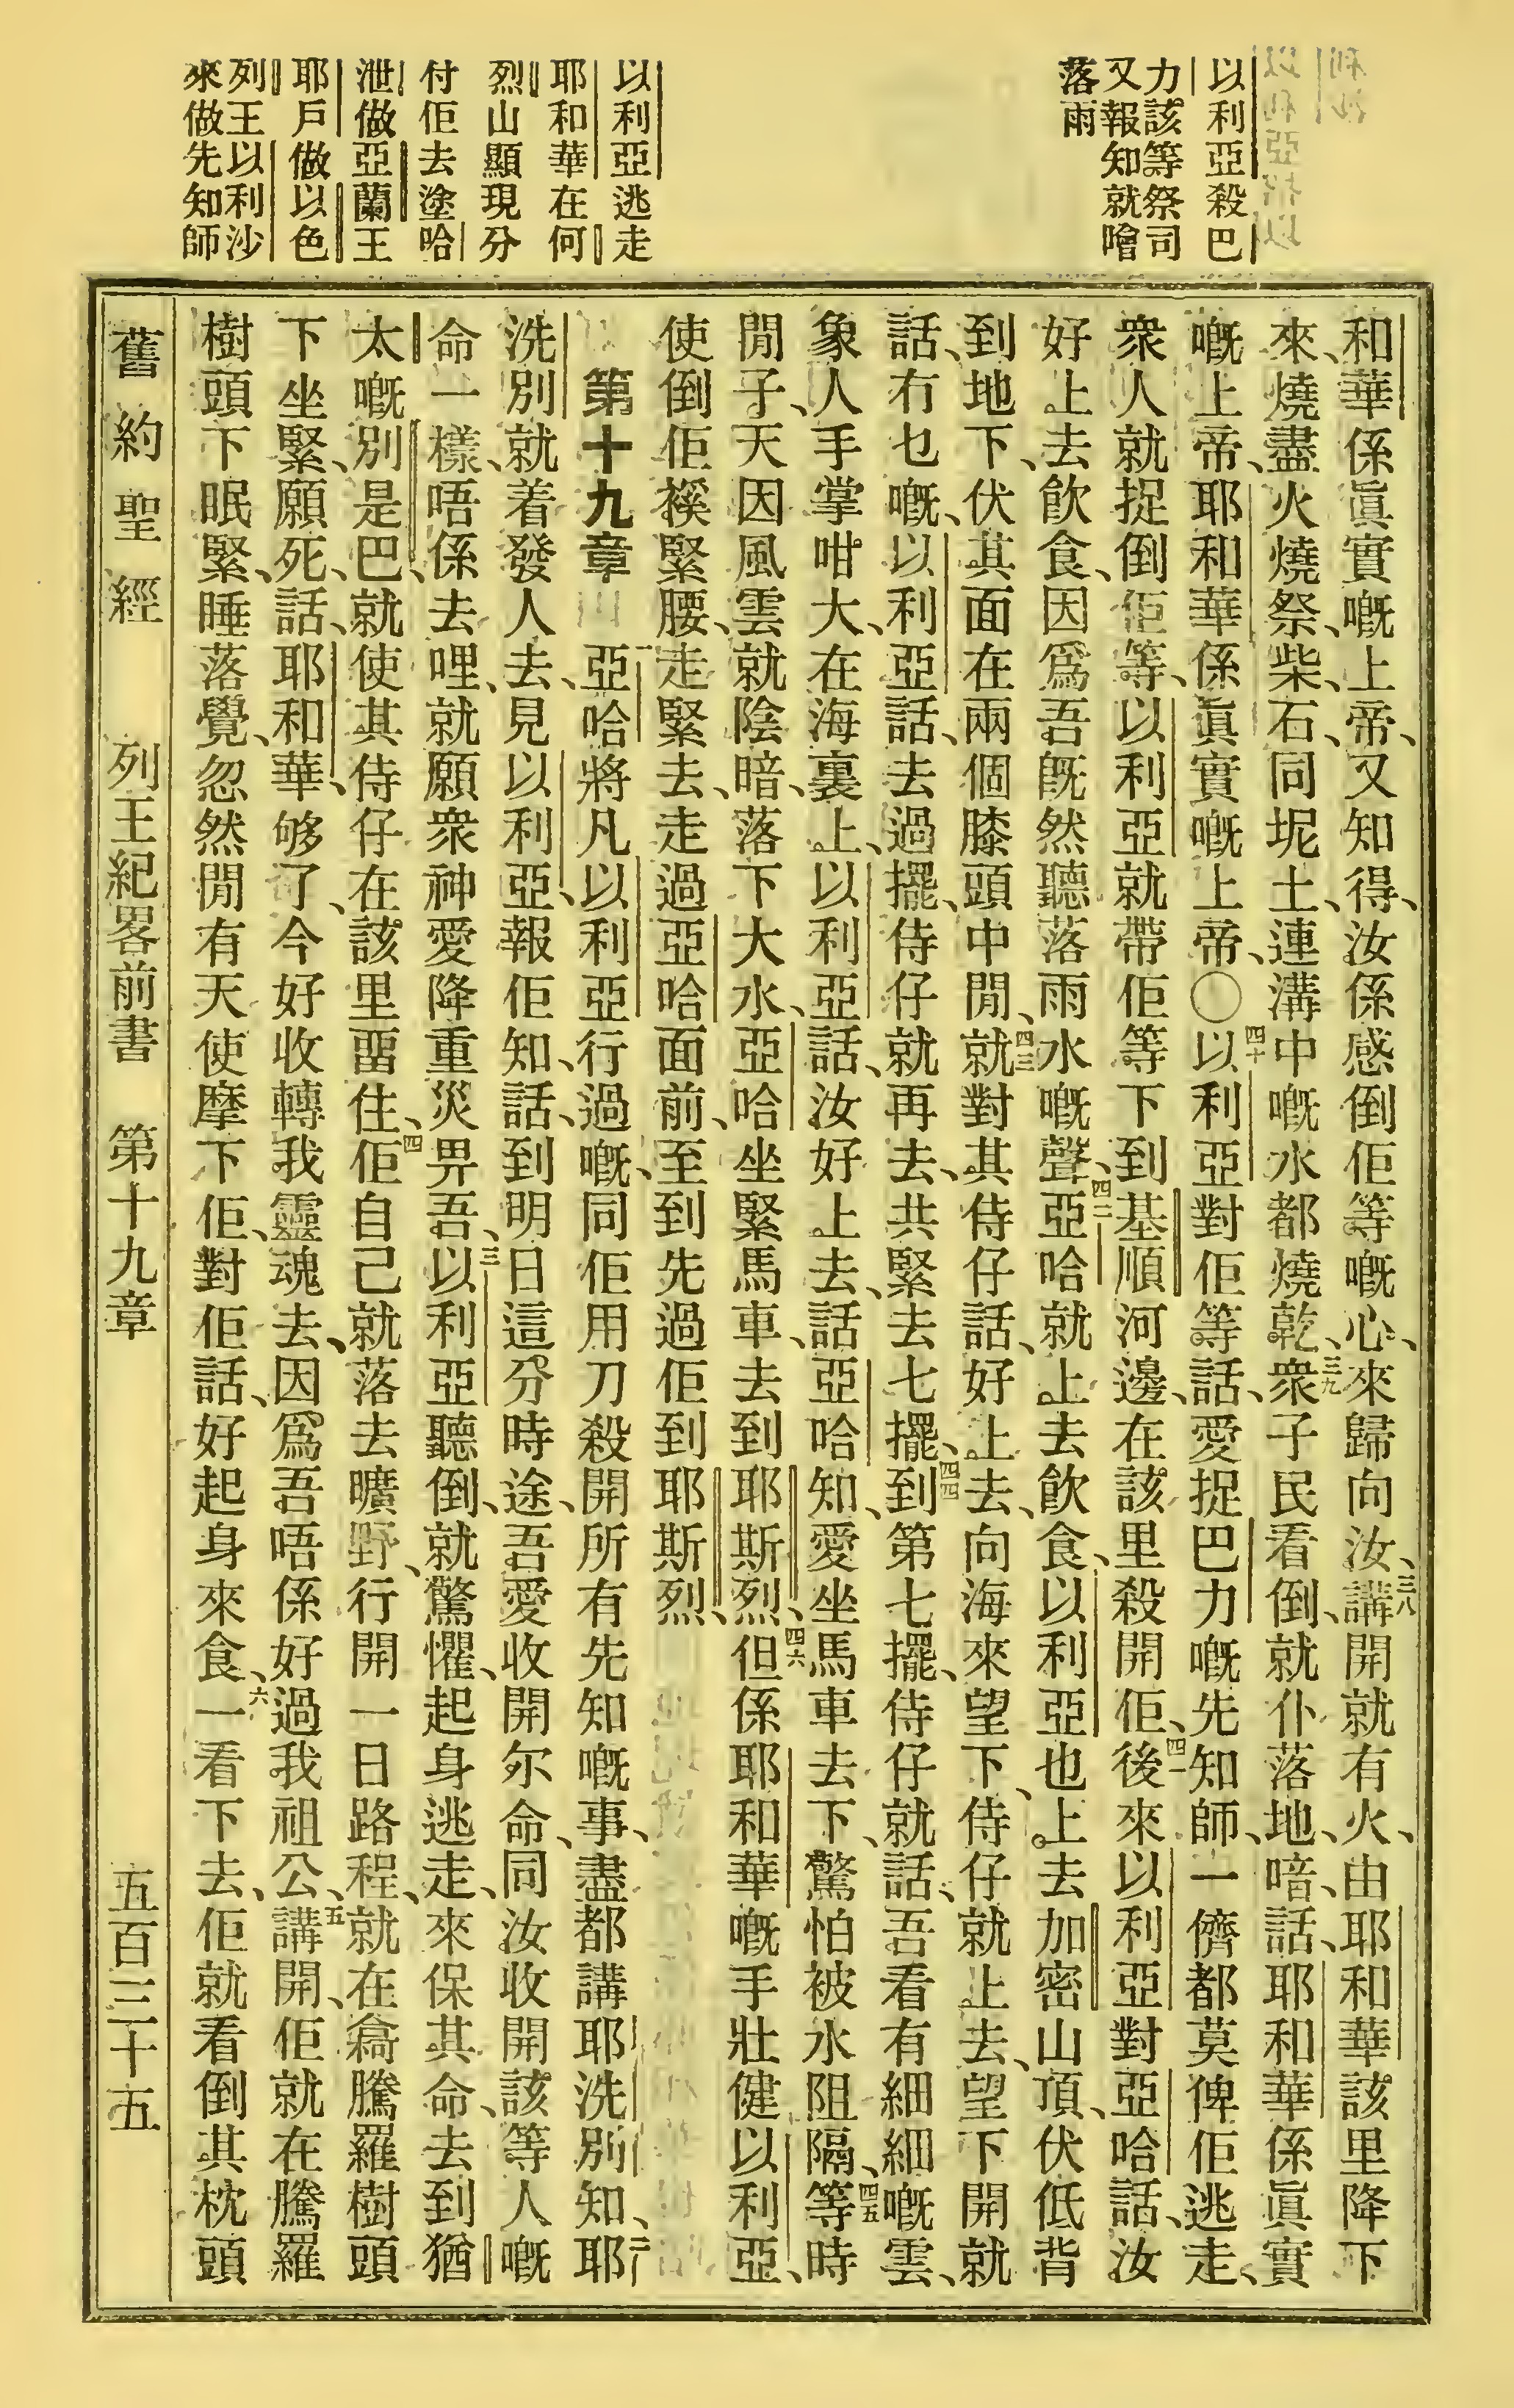 以利亞殺巴
力該等祭司
又報知就噲
落雨
以利亞逃走
耶和華在何
烈山顯現分
付佢去塗哈
泄做亞蘭王
耶戶做以色
列王以利沙
來做先知師
和華係眞實嘅上帝、又知得、汝係感倒佢等嘅心、來歸向汝、三八講開就有火、由耶和華該里降下
來、燒盡火燒祭、柴、石、同坭土、連溝中嘅水都燒乾、三九衆子民看倒、就仆落地、喑、話、耶和華係眞實
嘅上帝、耶和華係眞實嘅上帝、〇四十以利亞對佢等話、愛捉巴力嘅先知師、一儕都莫俾佢逃走、
衆人就捉倒佢等、以利亞就帶佢等下到基順河邊、在該里殺開佢、四一後來以利亞對亞哈話、汝
好上去飲食、因爲吾旣然聽落雨水嘅聲、四二亞哈就上去飲食、以利亞也上去加密山頂、伏低背
到地下、伏其面在兩個膝頭中間、四三就對其侍仔話、好上去、向海來望下、侍仔就上去、望下開就
話、冇乜嘅、以利亞話、去過擺、侍仔就再去、共緊去七擺、四四到第七擺、侍仔就話、吾看有細細嘅雲、
象人手掌咁大、在海裏上、以利亞話、汝好上去、話亞哈知、愛坐馬車去下、驚怕被水阻隔、四五等時
間子、天因風雲就陰暗、落下大水、亞哈坐緊馬車、去到耶斯烈、四六但係耶和華嘅手壯健以利亞、
使倒佢𧜵緊腰、走緊去、走過亞哈面前、至到先過佢到耶斯烈、
第十九章 一亞哈將凡以利亞行過嘅、同佢用刀殺開所有先知嘅事、盡都講耶洗別知、二耶
洗別就着發人去、見以利亞、報佢知、話、到明日這分時途、吾愛收開尔命、同汝收開該等人嘅
命一樣、唔係去哩、就願衆神愛降重災畀吾、三以利亞聽倒、就驚懼、起身逃走、來保其命、去到猶
太嘅別是巴、就使其侍仔在該里畱住、四佢自己就落去曠野、行開一日路程、就在裔騰羅樹頭
下坐緊、願死、話、耶和華、够了、今好收轉我靈魂去、因爲吾唔係好過我祖公、五講開、佢就在騰羅
樹頭下眠緊、睡落覺、忽然間有天使摩下佢、對佢話、好起身來食、六一看下去、佢就看倒其枕頭
舊約聖經 列王紀畧前書 第十九章 五百三十五